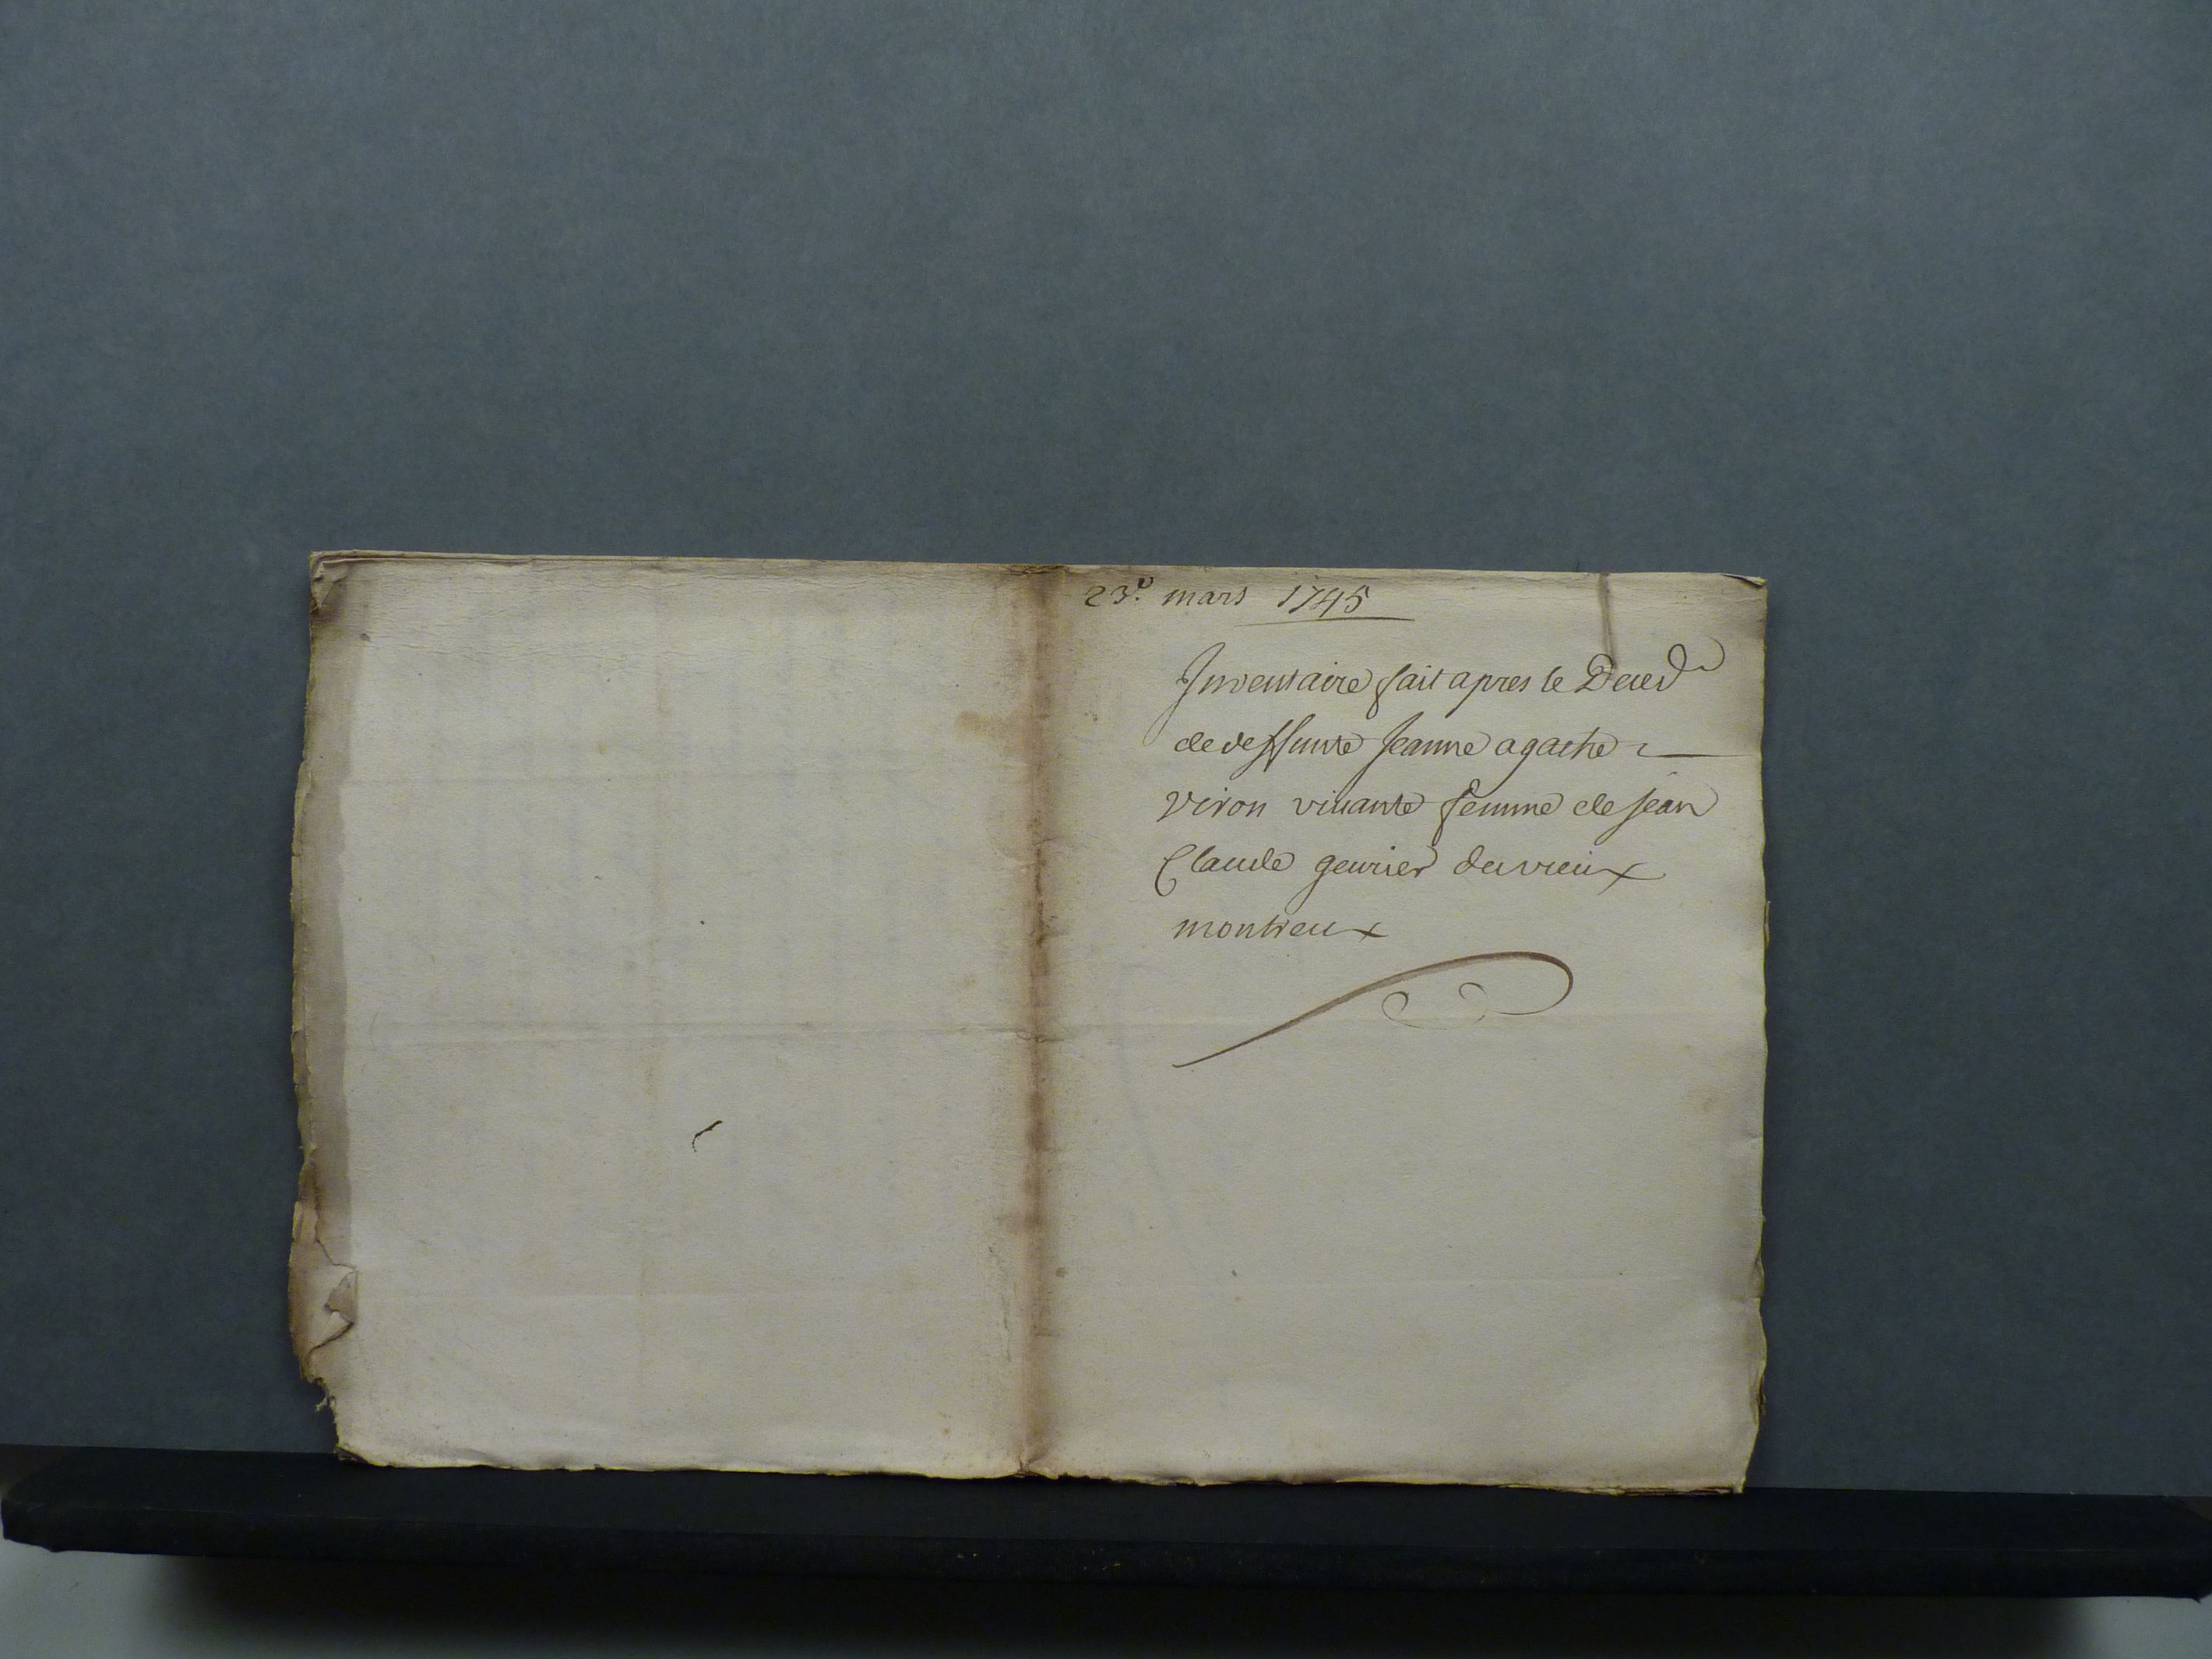 23e. mars 1745
Inventaire fait apres le Deced
de deffunte Jeanne agathe
viron vivante femme de Jean
Claude geurier du vieux
montreux